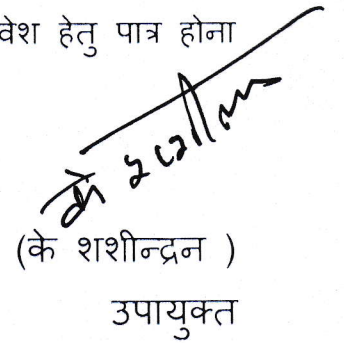 वेश हेतु पात्र होना
(के शशीन्द्रन )
उपायुक्त